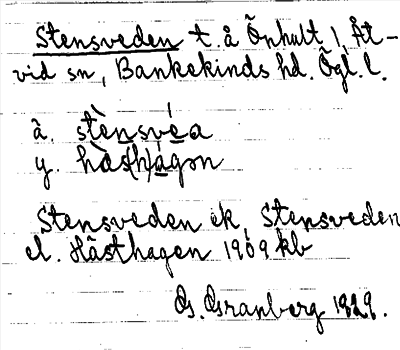 Stensveden t. å Önhult 1, Åt-
vid sn, Bankekinds hd. Ögl. l.
ä. stènsvéa
y. hàs(h)ágən
Stensveden ek, Stensveden
el. Hästhagen 1909 kb
G. Granberg 1929.